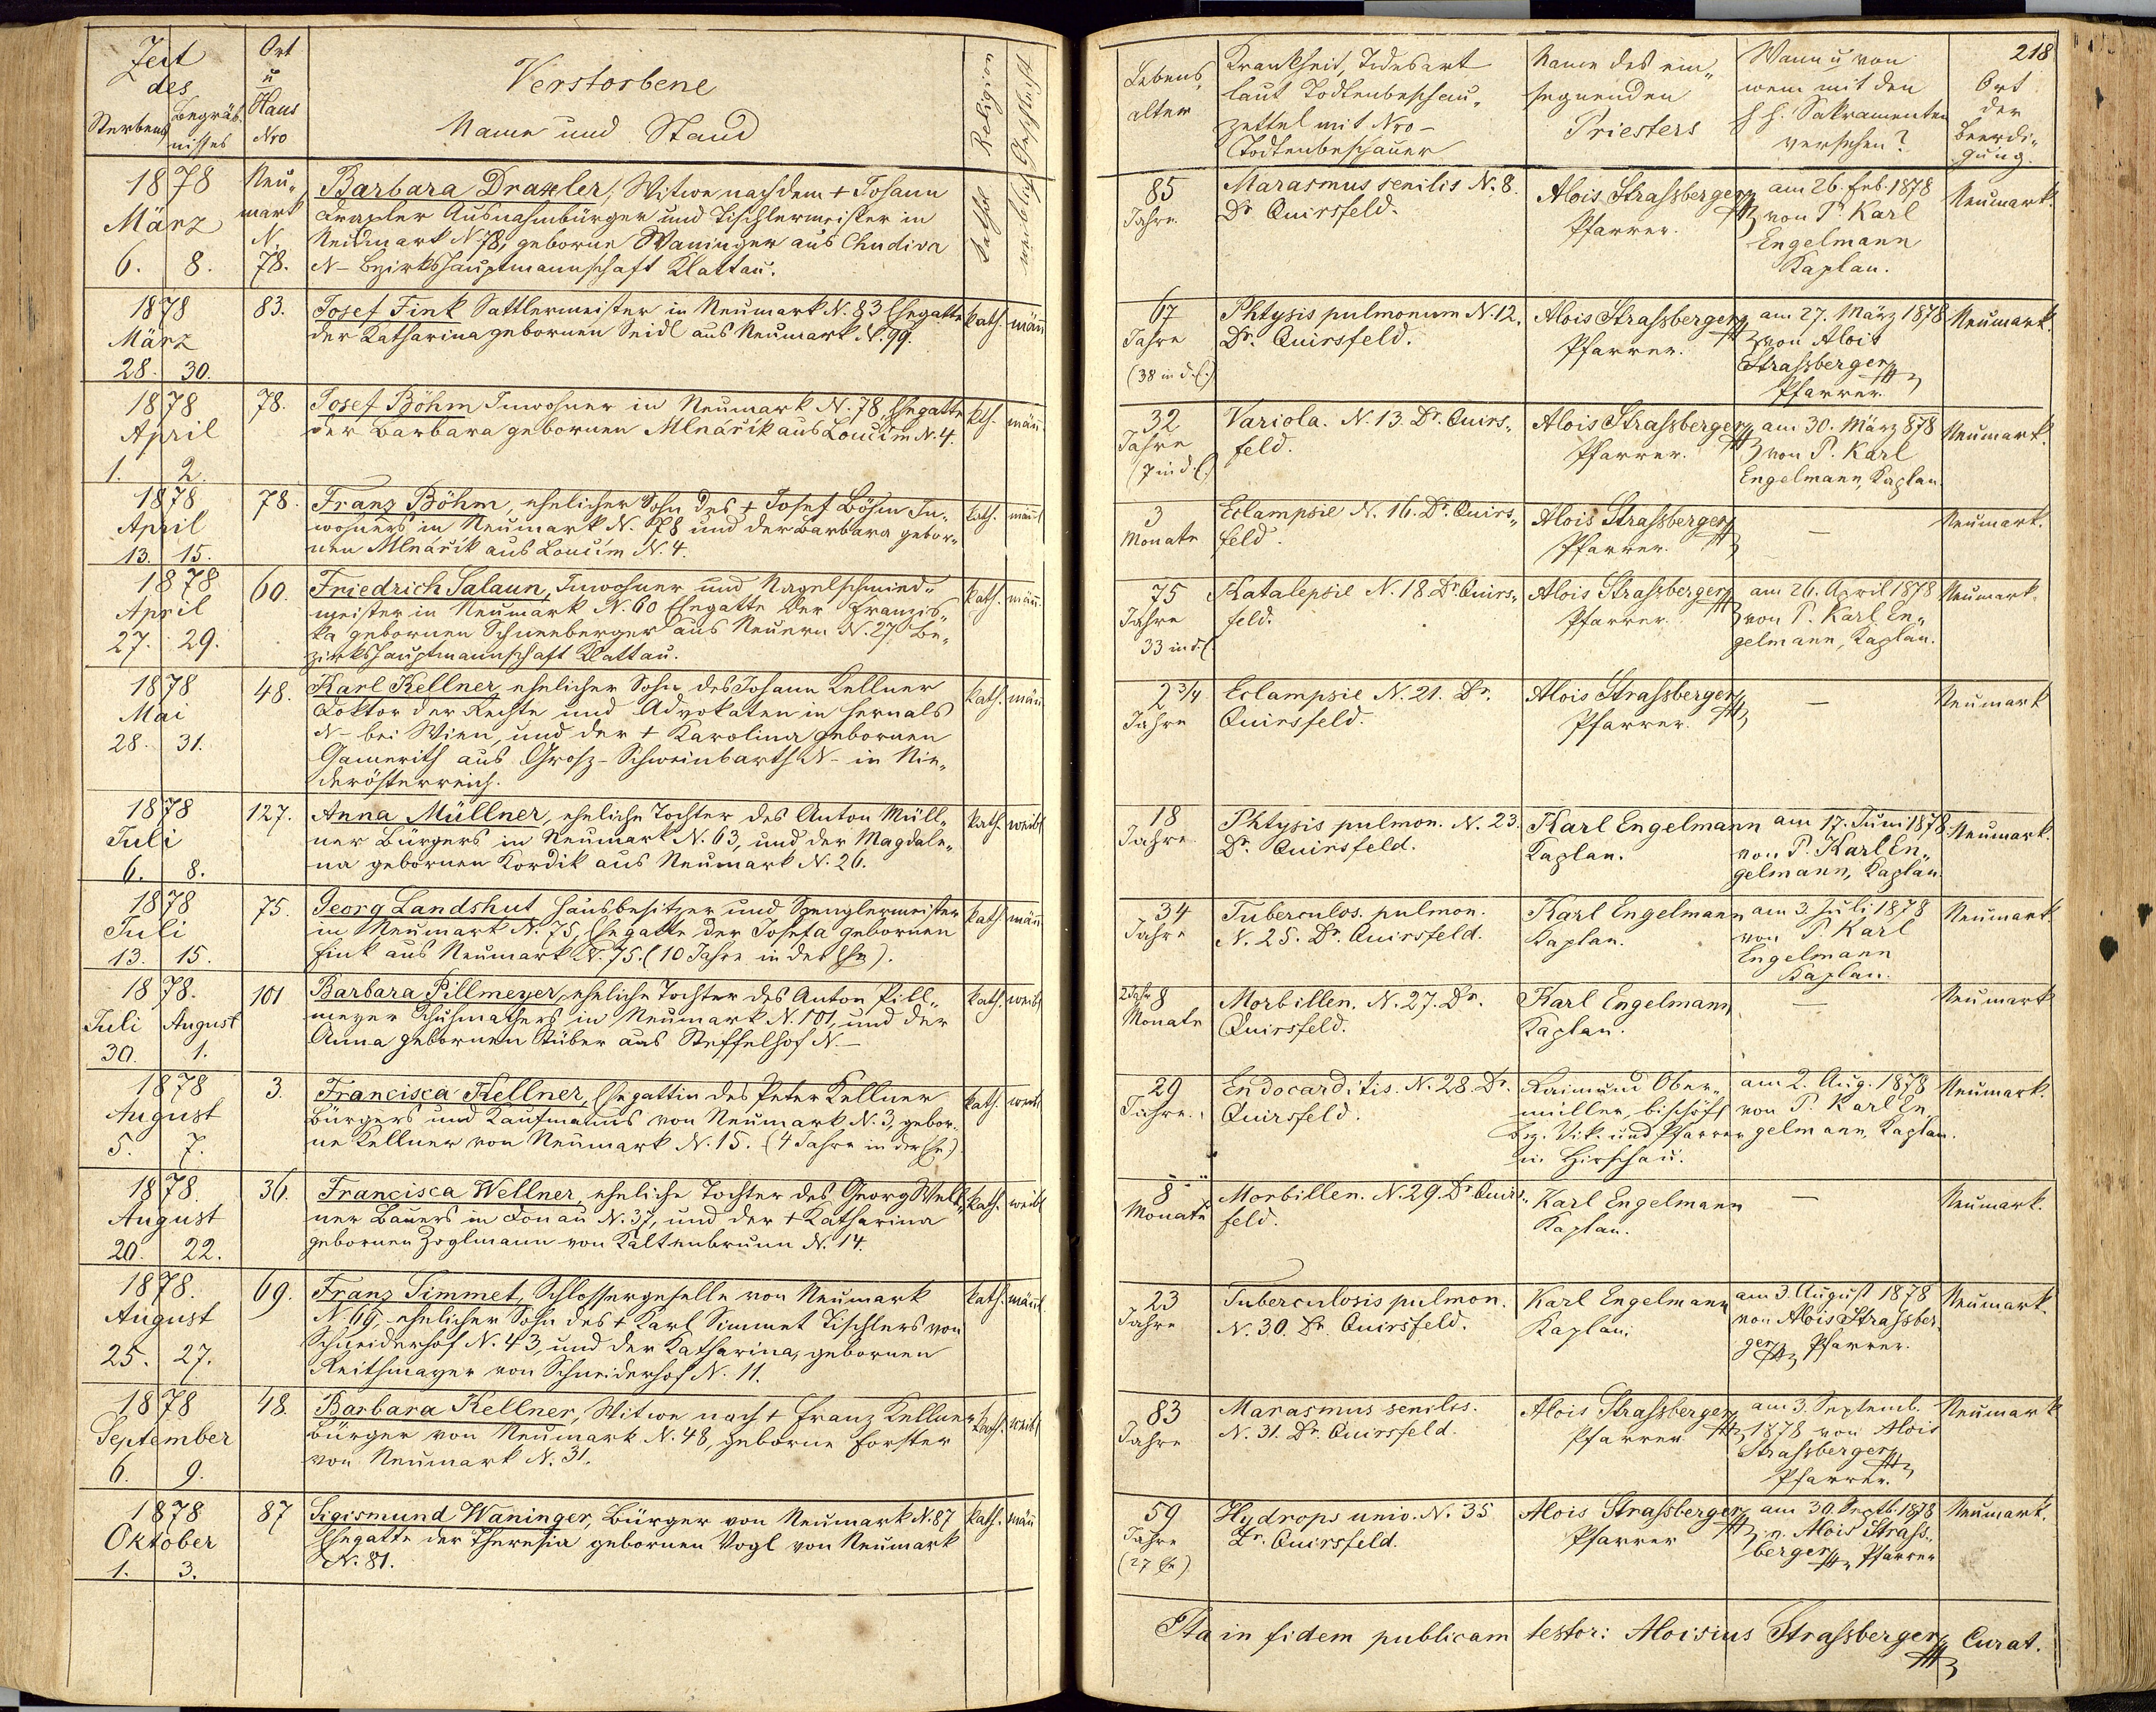 Zeit
des
Sterbens
Begräb-
nisses
Ort
u
Haus
Nro
Verstorbene
Name und Stand
Religion
Geschlecht
1878
März
6. 8.
Neu„
mark
N.
78.
Barbara Draxler, Witwe nach dem + Johann
Draxler Ausnahmbürger und Tischlermeister in
Neumark N. 78, geborne Waninger aus Chudiva
N– Bezirkshauptmannschaft Klattau.
Kathol
weiblich
1878
März
28. 30.
83.
Josef Fink Sattlermeister in Neumark N. 83 Ehegatte
der Katharina gebornen Seidl aus Neumark N. 99.
kath. männ
1878
April
1. 2.
78.
Josef Böhm Inwohner in Neumark N. 78, Ehegatte
der Barbara gebornen Mlnářik aus Loučim N. 4.
kth. männ
1878
April
13. 15.
78.
Franz Böhm, ehelicher Sohn des + Josef Böhm In„
wohners in Neumark N. 78 und der Barbara gebor„
nen Mlnářik aus Loučim N. 4.
kath. männl
1878
April
27. 29.
60.
Friedrich Salaun, Inwohner und Nagelschmied„
meister in Neumark N. 60 Ehegatte der Franzis„
ka gebornen Schneeberger aus Neuern N. 27 Be„
zirkshauptmannschaft Klattau.
kath. männ.
1878
Mai
28. 31.
48.
Karl Kellner, ehelicher Sohn des Johann Kellner
Doktor der Rechte und Advokaten in Hernals
N– bei Wien, und der + Karolina gebornen
Gamerith aus Grosz-Schweinbarth N– in Nie„
derösterreich.
kath. männ
1878
Juli
6. 8.
127.
Anna Müllner, eheliche Tochter des Anton Müll„
ner Bürgers in Neumark N. 63, und der Magdale„
na gebornen Kordik aus Neumark N. 26.
kath. weibl
1878
Juli
13. 15.
75.
Georg Landshut Hausbesitzer und Spenglermeister
in Neumark N. 75, Ehegatte der Josefa gebornen
Fink aus Neumark N. 75. (10 Jahre in der Ehe).
kath. männ
1878.
Juli August
30. 1.
101
Barbara Pillmeyer, eheliche Tochter des Anton Pill„
meyer Schuhmachers in Neumark N. 101, und der
Anna gebornen Stüber aus Steffelhof N.–
kath. weibl
1878
August
5. 7.
3.
Francisca Kellner, Ehegattin des Peter Kellner
Bürgers und Kaufmanns von Neumark N. 3, gebor„
ne Kellner von Neumark N. 15. (4 Jahre in der Ehe)
kath. weibl
1878.
August
20. 22.
36.
Francisca Wellner, eheliche Tochter des Georg Well„
ner Bauers in Donau N. 37, und der + Katharina
gebornen Zoglmann von Kaltenbrunn N. 14.
kath. weibl
1878.
August
25. 27.
69.
Franz Simmet, Schlossergeselle von Neumark
N. 69, ehelicher Sohn des + Karl Simmet Tischlers von
Schneiderhof N. 43, und der Katharina, gebornen
Reithmayer von Schneiderhof N. 11.
kath. männl
1878
September
6. 9.
48.
Barbara Kellner, Witwe nach + Franz Kellner
Bürger von Neumark N. 48, geborne Forster
von Neumark N. 31.
kath. weibl
1878
Oktober
1. 3.
87
Sigismund Waninger, Bürger von Neumark N. 87
Ehegatte der Theresia gebornen Vogl von Neumark
N. 81.
kath. männ
218
Lebens„
alter
Krankheit, Todesart
laut Todtenbeschau„
zettel mit Nro–
Todtenbeschauer
Name des ein„
segnenden
Priesters
Wann u von
wem mit den
h h. Sakramenten
versehen?
Ort
der
Beerdi„
gung.
85
Jahre.
Marasmus senilis N. 8.
Dr Quirsfeld.
Alois Strassberger
Pfarrer.
am 26. Feb. 1878
von P. Karl
Engelmann
Kaplan.
Neumark.
67
Jahre
(38 in d. E.)
Phtysis pulmonum N. 12.
Dr. Quirsfeld.
Alois Strassberger
Pfarrer.
am 27. März 1878
von Alois
Strassberger
Pfarrer.
Neumark.
32
Jahre
(7 in d. E.)
Variola. N. 13. Dr. Quirs„
feld.
Alois Strassberger
Pfarrer.
am 30. März 878
von P. Karl
Engelmann, Kaplan.
Neumark.
3
Monate
Eclampsie N. 16. Dr. Quirs„
feld.
Alois Strassberger
Pfarrer.
–
Neumark.
75
Jahre
33 in d. E.
Katalepsie N. 18. Dr. Quirs„
feld.
Alois Strassberger
Pfarrer.
am 26. April 1878
von P. Karl En„
gelmann, Kaplan.
Neumark.
2 3/4
Jahre
Eclampsie N. 21. Dr.
Quirsfeld.
Alois Strassberger
Pfarrer.
–
Neumark
18
Jahre
Phtysis pulmon. N. 23.
Dr. Quirsfeld.
Karl Engelmann
Kaplan.
am 17. Juni 1878
von P. Karl En„
gelmann, Kaplan.
Neumark.
34
Jahre
Tuberculos. pulmon.
N. 25. Dr. Quirsfeld.
Karl Engelmann
Kaplan.
am 3. Juli 1878
von P. Karl
Engelmann
Kaplan.
Neumark.
2 Jahr 8
Monate
Morbillen. N. 27. Dr.
Quirsfeld.
Karl Engelmann
Kaplan.
–
Neumark
29
Jahre.
Endocarditis. N. 28. Dr.
Quirsfeld.
Raimund Ober„
müller, bischöfl
Bez. Vik. und Pfarrer
in Hirschau.
am 2. Aug. 1878
von P. Karl En„
gelmann, Kaplan.
Neumark.
8
Monate
Morbillen. N. 29. Dr Quirs„
feld.
Karl Engelmann
Kaplan.
–
Neumark.
23
Jahre
Tuberculosis pulmon.
N. 30. Dr. Quirsfeld.
Karl Engelmann
Kaplan.
am 3. August 1878
von Alois Strassber„
ger Pfarrer.
Neumark.
83
Jahre
Marasmus senilis.
N. 31. Dr. Quirsfeld.
Alois Strassberger
Pfarrer
am 3. Septemb.
1878 von Alois
Strassberger
Pfarrer.
Neumark
59
Jahre
(27 Ehe)
Hydrops univ. N. 35
Dr. Quirsfeld.
Alois Strassberger
Pfarrer
am 30. Septb. 1878
v. Alois Strass„
berger Pfarrer
Neumark.
Ita in fidem publicam testor: Aloisius Strassberger, Curat.